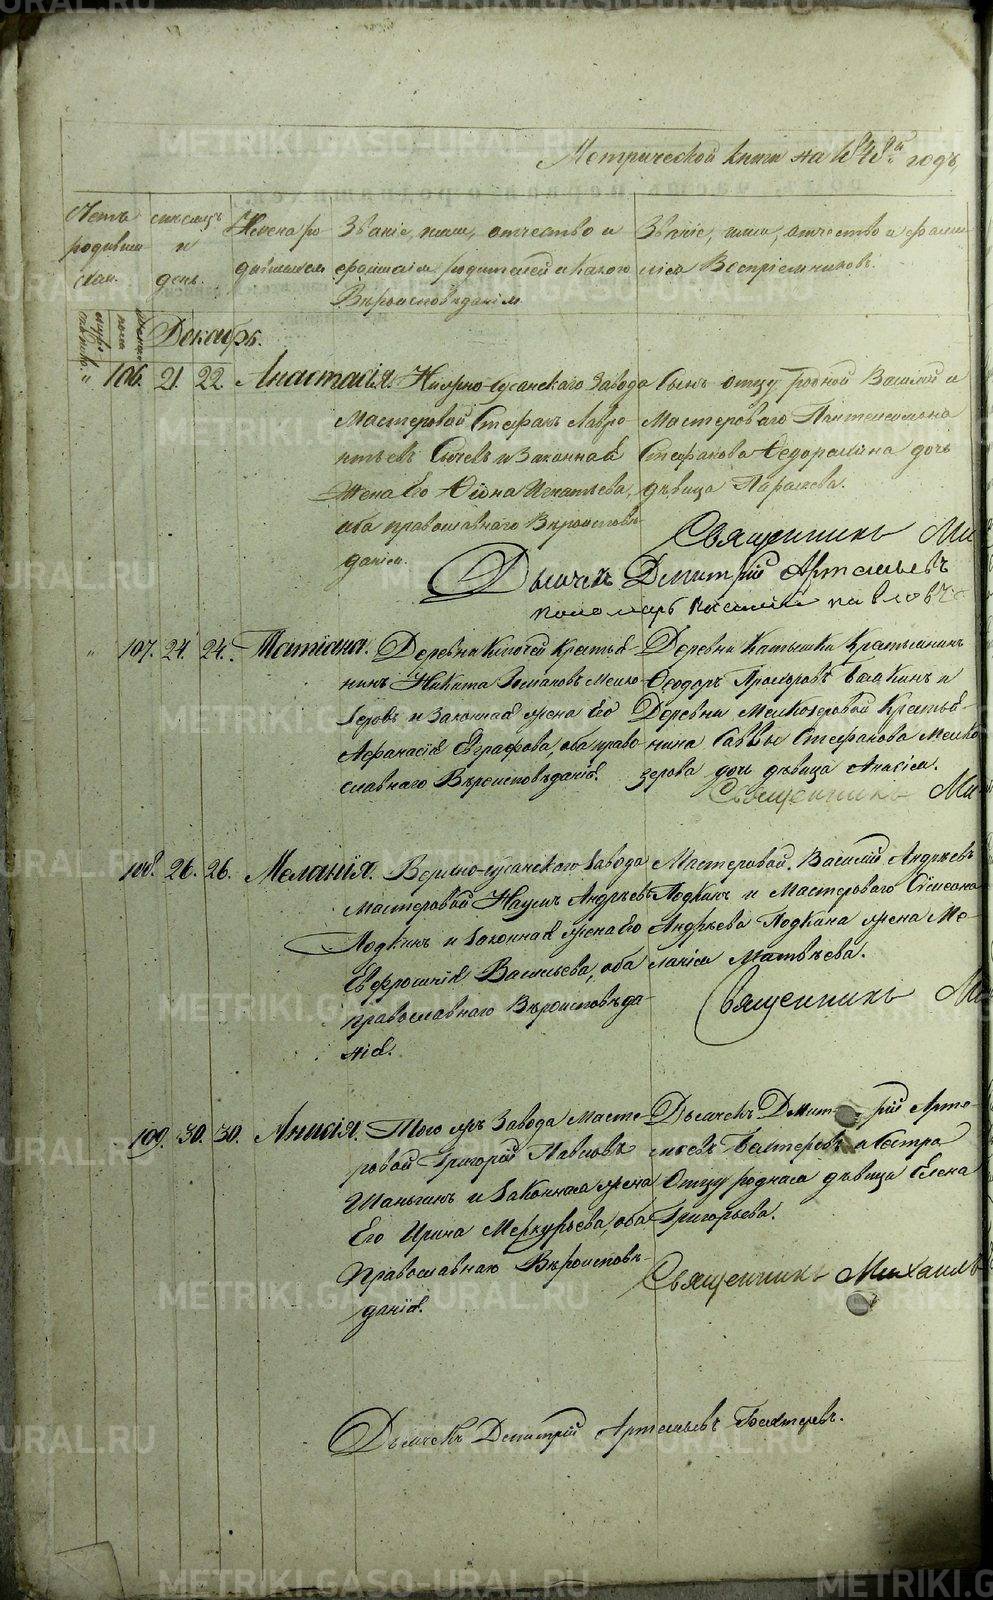 Метрической книги на 1848й годъ
Счетъ родившихся.
мѣсяцъ и день.
Имена родившихся
Званіе, имя, отчество и фамилія родителей и какого Вѣроисповѣданія
Званіе, имя, отчество и фамилія Воспріемниковъ.
мужеска пола
женска
Декабрь.
" 106. 21. 22. Анастасія. завода
Мастеровой Стефанъ Лавро-
нтьевъ Сычевъ и Законная
Жена Его Игнатьева,
оба православнаго Вѣроисповѣ-
данія.
Сынъ отцу родной Василій и
Мастероваго Пантелеимона
Стефанова дочь
дѣвица Параскева.
Священникъ Ми
Дьячекъ Дмитрій Артемьевъ
пономарь василий павловъ
" 107. 24. 24. Татіана. Деревни Крестья-
нинъ Никита Мелко-
зеровъ и Законная жена Его
Афанасія Евграфова, оба право-
славнаго Вѣроисповѣданія.
Деревни Крестьянинъ
Ѳеодоръ Прохоровъ и
Деревни Мелкозеровой Крестья-
нина Саввы Стефанова Мелко-
зерова дочь дѣвица Анисія.
Священникъ Ми
108. 26. 26. Меланія. Завода
Мастеровой Наумъ Андреевъ
Лодкинъ и Законная жена Его
Евфросинія Васильева, оба
православнаго Вѣроисповѣда-
нія.
Мастеровой Василій Андреевъ
Лодкинъ и Мастероваго Симеона
Андреева Лодкина жена Ме-
ланія Матвѣева.
Священникъ Ми
109. 30. 30. Анисія. Того жъ Завода Масте-
ровой Григорій Павловъ
Шаньгинъ и Законная жена
Его Ирина Меркурьева, оба
Православнаго Вѣроисповѣ-
данія.
Дьячекъ Дмитрій Арте-
мьевъ Бахтеревъ и Сестра
Отцу родная дѣвица Елена
Григорьева.
Священникъ Михаилъ
Дьячекъ Дмитрій Артемьевъ Бахтеревъ.
METRIKI.GASO-URAL.RU